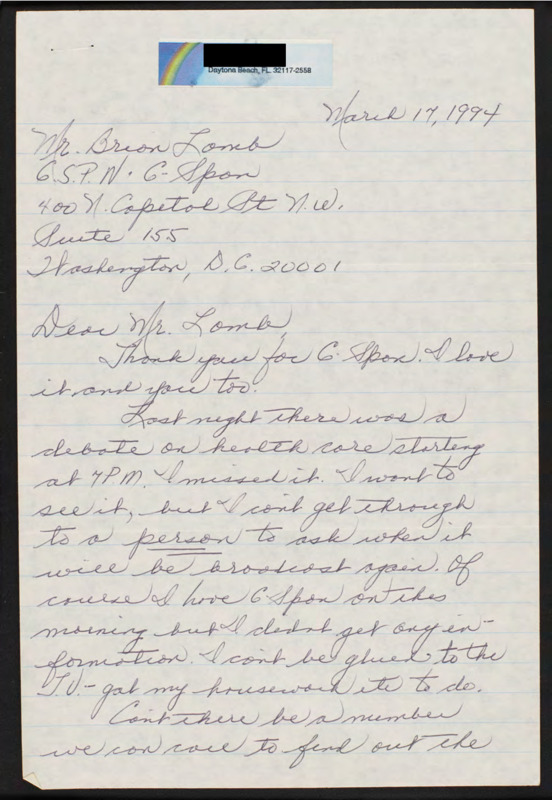 Daytona Beach, FL 32117-2558
March 17, 1994
Mr. Brian Lamb
C.S.P.N. C-Span
400 N. Capitol St N.W.
Suite 155
Washington, D.C. 20001
Dear Mr. Lamb,
Thank you for C-Span. I love
it and you too.
Last night there was a
debate on health care starting
at 7 P.M. I missed it. I want to
see it, but I can't get through
to a person to ask when it
will be broadcast again. Of
course I have C-Span on this
morning but I didn't get any in-
formation. I can't be glued to the
T.V. - got my housework etc to do.
Can't there be a number
we can call to find out the